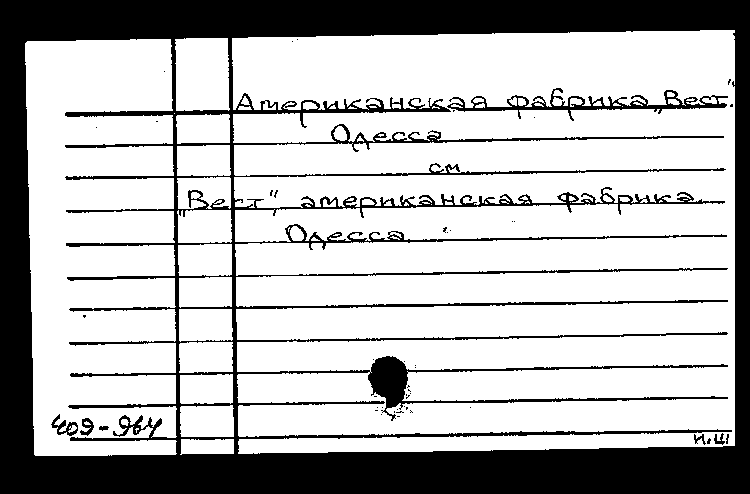 Американская фабрика „Вест".
Одесса
см.
„Вест", американская фабрика.
Одесса.
409-964
И.Ш